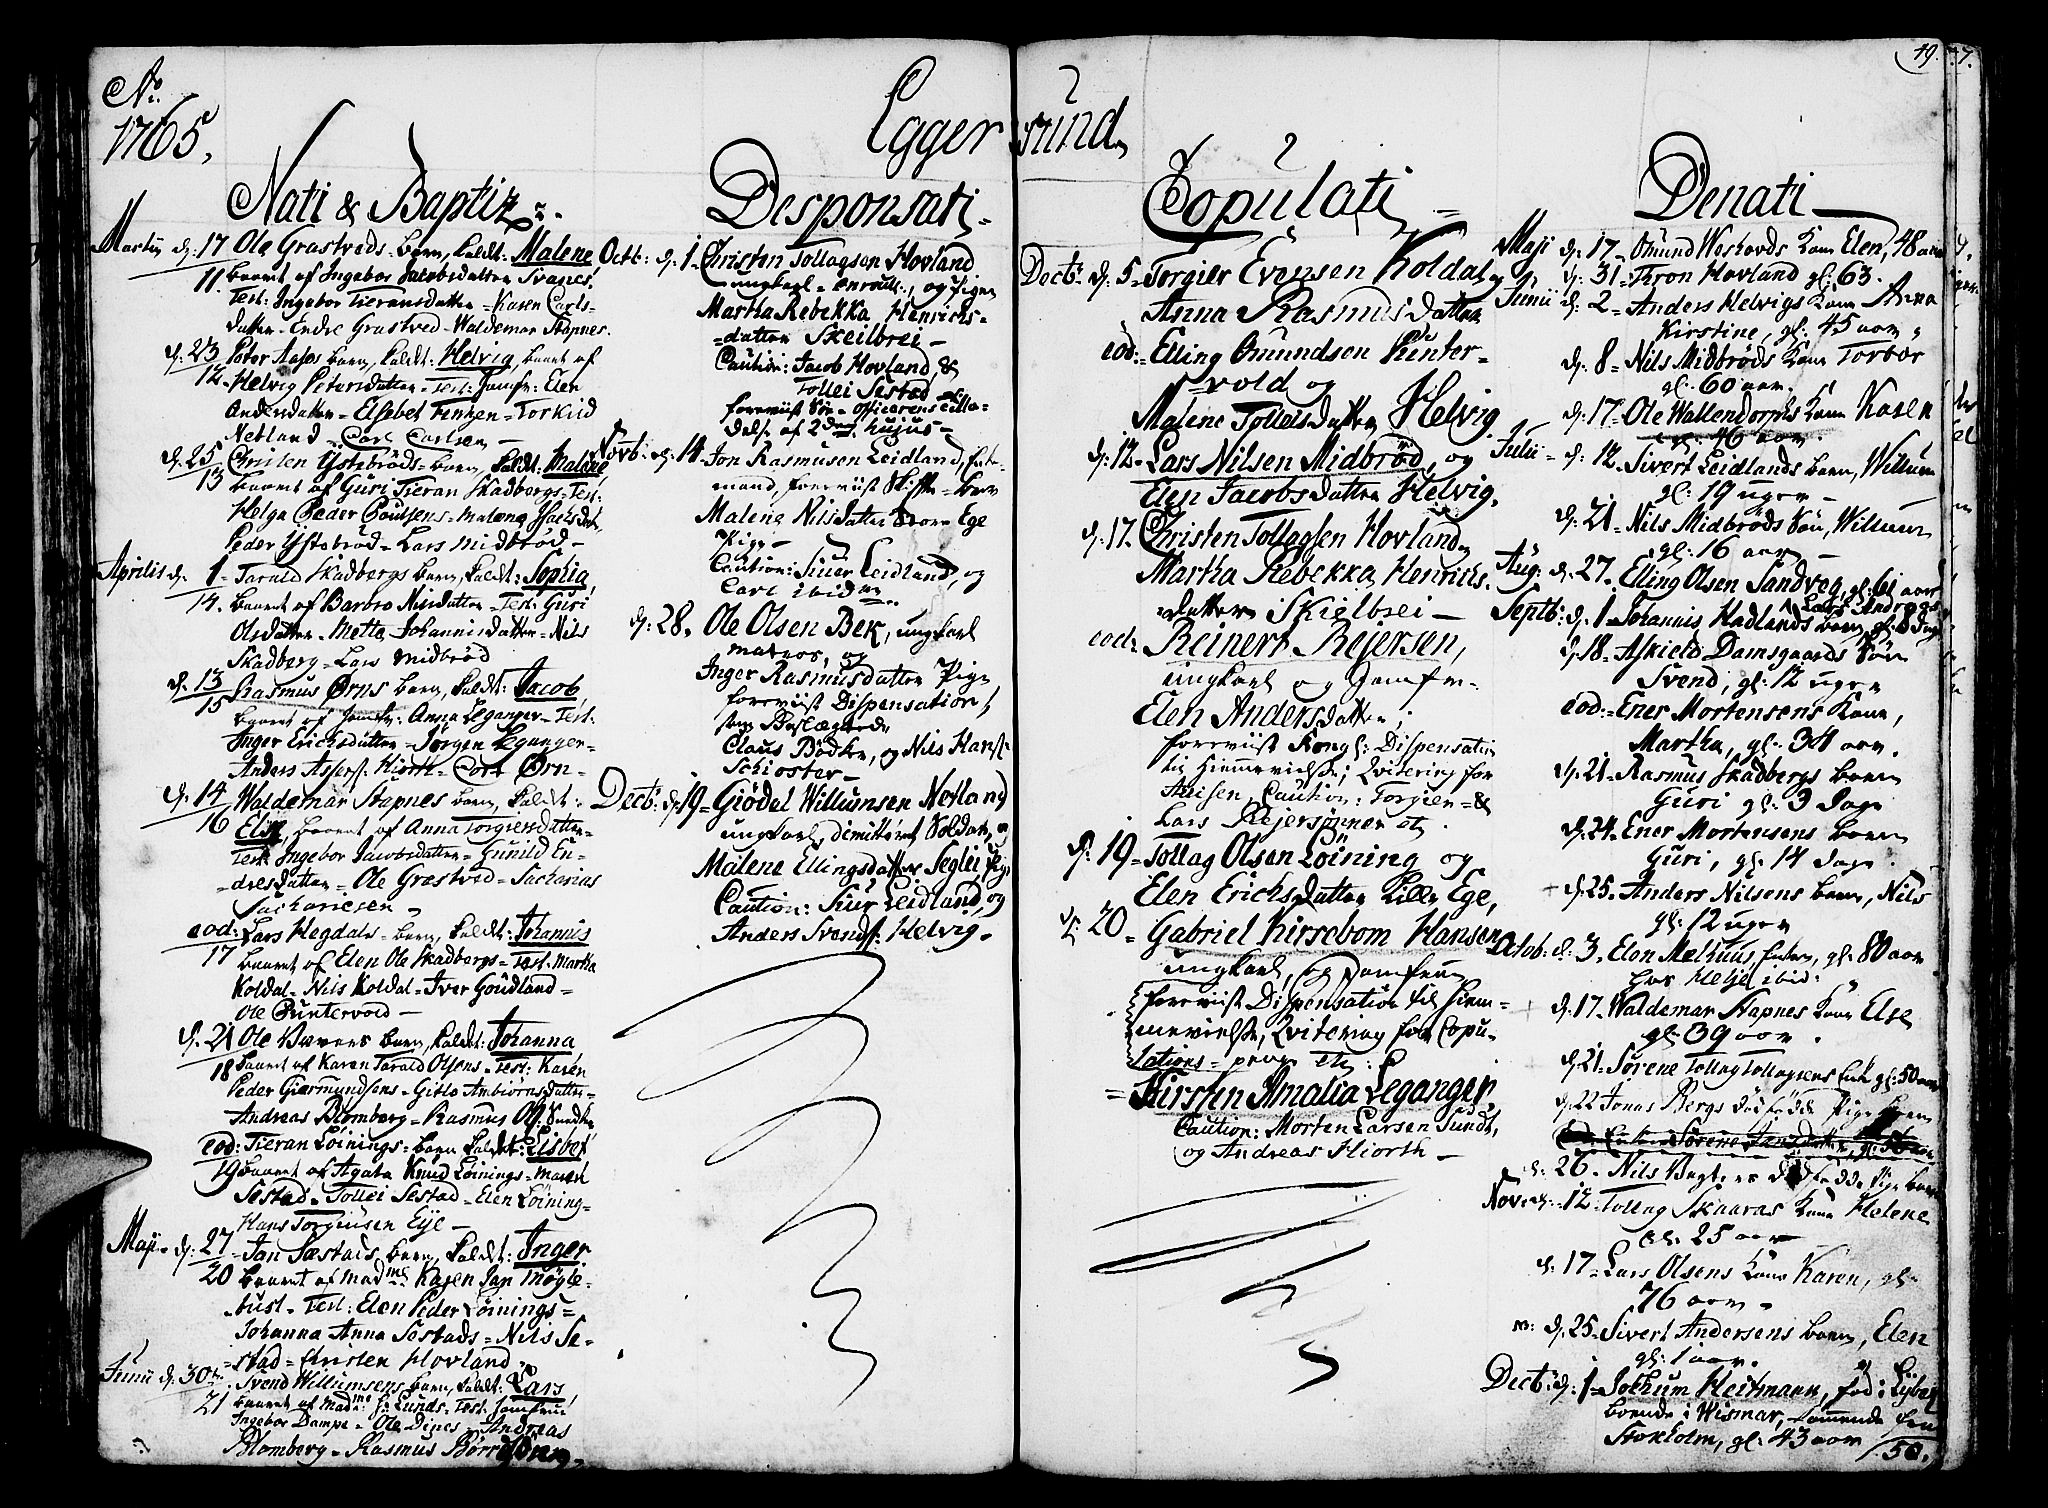 Aº.
1765.
Eggersund.
49.
Nati & Baptiz.
Martii d. 17 Ole Grastveds barn, kaldt: Malene
11. baaret af Ingebor Jacobsdatter Svanes.
Test: Ingebor Tieransdatter - Karen Carls-
datter - Endre Grastved - Waldemar Stapnes.
d. 23 Peter Aases barn, kaldt: Helvig, baaret af
12. Helvig Petersdatter - Test: Jomfr: Elen
Andersdatter - Elsebet Feyer - Torkild
Netland - Carl Carlsen -
d. 25 Christen Ystebrøds - barn, kaldt: Malene
13 baaret af Guri Tieran Skadbergs - Test:
Helga Peder Poulsens - Malena Isachsdat.
Peder Ystebrød - Lars Midbrød -
Aprilis d. 1 - Tarald Skadbergs barn, kaldt: Sophia,
14. baaret af Barbro Nilsdatter - Test: Guri
Olsdatter - Metta Johannisdatter - Nils
Skadberg - Lars Midbrød
d. 13 Rasmus Ørns barn, kaldt: Jacob,
15 baaret af Jomfr: Anna Leganger - Test:
Inger Ericksdatter - Jørgen Leganger -
Anders Assers. Hiorth - Carl Ørn -
d. 14 Waldemar Stapnes barn, kaldt:
16 Else, baaret af Anna Torgiersdatter -
Test: Ingebor Jacobsdatter - Gunild En-
dresdatter - Ole Grastved - Sacharias
Sachariesen -
eod: Lars Hegdals - barn, kaldt: Johannis
17 baaret af Elen Ole Skadbergs - Test: Martha
Koldal - Nils Koldal - Iver Göudland -
Ole Puntervold -
d. 21 Ole Bævers barn, kaldt: Johanna
18 baaret af Karen Tarald Olsens - Test: Karen
Peder Giermundsens - Gitlo Ambiörnsdatter -
Andreas Blomberg - Rasmus Ols. Sundbø
eod: Tieran Löinings - barn kaldt: Lisbet
19 baaret af Agata Knud Löinings - Maret
Sestad - Tollei Sestad - Elen Löining -
Hans Torgiersen Eye -
Maji - d. 27 - Jan Sæstads barn, kaldt: Inger
20 baaret af Madme Karen Jan Mögle-
bust - Test: Elen Peder Löinings -
Johanna Anna Sestads - Nils Se-
stad - Christen Hovland.
Junii d. 30 - Svend Willumsens barn, kaldt: Lars
21 baaret af Madme Lunds - Test: Jomfru
Ingebor Dampe - Ole Dines - Andreas
Blomberg - Rasmus Börresen -
Desponsati -
Octb: d. 1 - Christen Tollagsen Hovland
ungkarl - enroull:, og Pigen
Martha Rebekka Henrichs-
datter Skeilbrei -
Caution: Jacob Hovland, &
Tollei Sestad
foreviist Söe - Officerens Tilla-
delse af 2den hujus -
Novb: d. 14 - Jon Rasmusen Leidland, Enke-
mand, foreviist Skifte - brev
Malena Nilsdatter Store Ege
Pige -
Caution: Siver Leidland, og
Carl ibidem.
d. 28. Ole Olsen Bek, ungkarl
matros, og
Inger Rasmusdatter Pige
foreviist Dispensation
som Beslægtede
Claus Bödker, og Nils Hans.
Schioster -
Decb: d. 19 - Giödel Willumsen Netland
ungkarl, dimitteret Soldat, og
Malene Ellingsdatter Seglei, Pige,
Caution: Siver Leidland, og
Anders Svends. Helvig -
Copulati -
Decb: d. 5 - Torgier Evensen Koldal, og
Anna Rasmusdatter
eod: - Elling Omundsen Punter-
vold og
Malene Tolleisdatter Helvig
d. 12. Lars Nilsen Midbrød, og
Elen Jacobsdatter Helvig.
d. 17. Christen Tollagsen Hovland,
Martha Rebekka Henrichs-
datter Skielbrei -
eod: Reinert Rejersen,
ungkarl og Jomfru
Elen Andersdatter;
foreviist Kongl: Dispensation
til Hiemmevielse; Qvitering for
Avisen, Caution: Torgier - &
Lars Rejersönner etc.
d. 19 - Tollag Olsen Löining og
Elen Erichsdatter Lille Ege,
d. 20 - Gabriel Kirsebom Hansen
ungkarl, og Jomfrue
foreviist Dispensation til Hiem-
mevielse, Qvitering for Copu-
lations - penge etc:
Kirsten Amalia Leganger,
Caution: Morten Larsen Sundt,
og Andreas Hiorth -
Denati -
Maji d. 17 - Omund Weshovds Kone Elen, 48 aar
d. 31 - Thron Hovland gl: 63.
Junii d. 2 - Anders Helvigs Kone Anna
Kirstine, gl: 45 aar.
d. 8 - Nils Midbrøds Kone Torbor
gl: 60 aar.
d. 17 - Ole Wallendorphs Kone Karen
gl: 46 aar.
Julii - d. 12. Sivert Leidlands barn, Willum
gl: 19 uger -
d. 21 - Nils Midbrøds Sön, Willum
gl: 16 aar -
Aug: d. 27. Elling Olsen Sandveg, gl: 61 aar
Septb: d. 1 - Johannis Hadlands barn, Lars Andreas gl: 8 Dage
d. 18 - Askield Damsgaards Sön
Svend, gl: 12 uger
eod: - Ener Mortensens Kone,
Martha, gl: 34 aar.
d. 21 - Rasmus Skadbergs barn
Guri gl: 3 Dage
d. 24 - Ener Mortensens barn
Guri, gl: 14 Dage.
d. 25. Anders Nilsens barn, Nils
gl: 12 uger
Octob: d: 3. Elen Melhuus, Enke, gl: 80 aar
hos Helje ibid:
d. 17 - Waldemar Stapnes Kone Else
gl: 39 aar.
d. 21 - Sörene Tollag Tollagsens Enke gl: 50 aar
d. 22 Jonas Bergs dödfödde Pige barn
d. 26. Nils Bagters dödfödde Pige barn
Nov: d. 12. Tollag Skaaras Kone Helene
gl: 25 aar
d. 17 - Lars Olsens Kone Karen, gl:
76 aar -
d. 25 - Sivert Andersens barn, Elen
gl: 1 aar.
Decb: d. 1 - Jochum Heitmann, föd i Lybeg
boende i Wismar, kommende fra
Stokholm, gl: 43 aar
50.